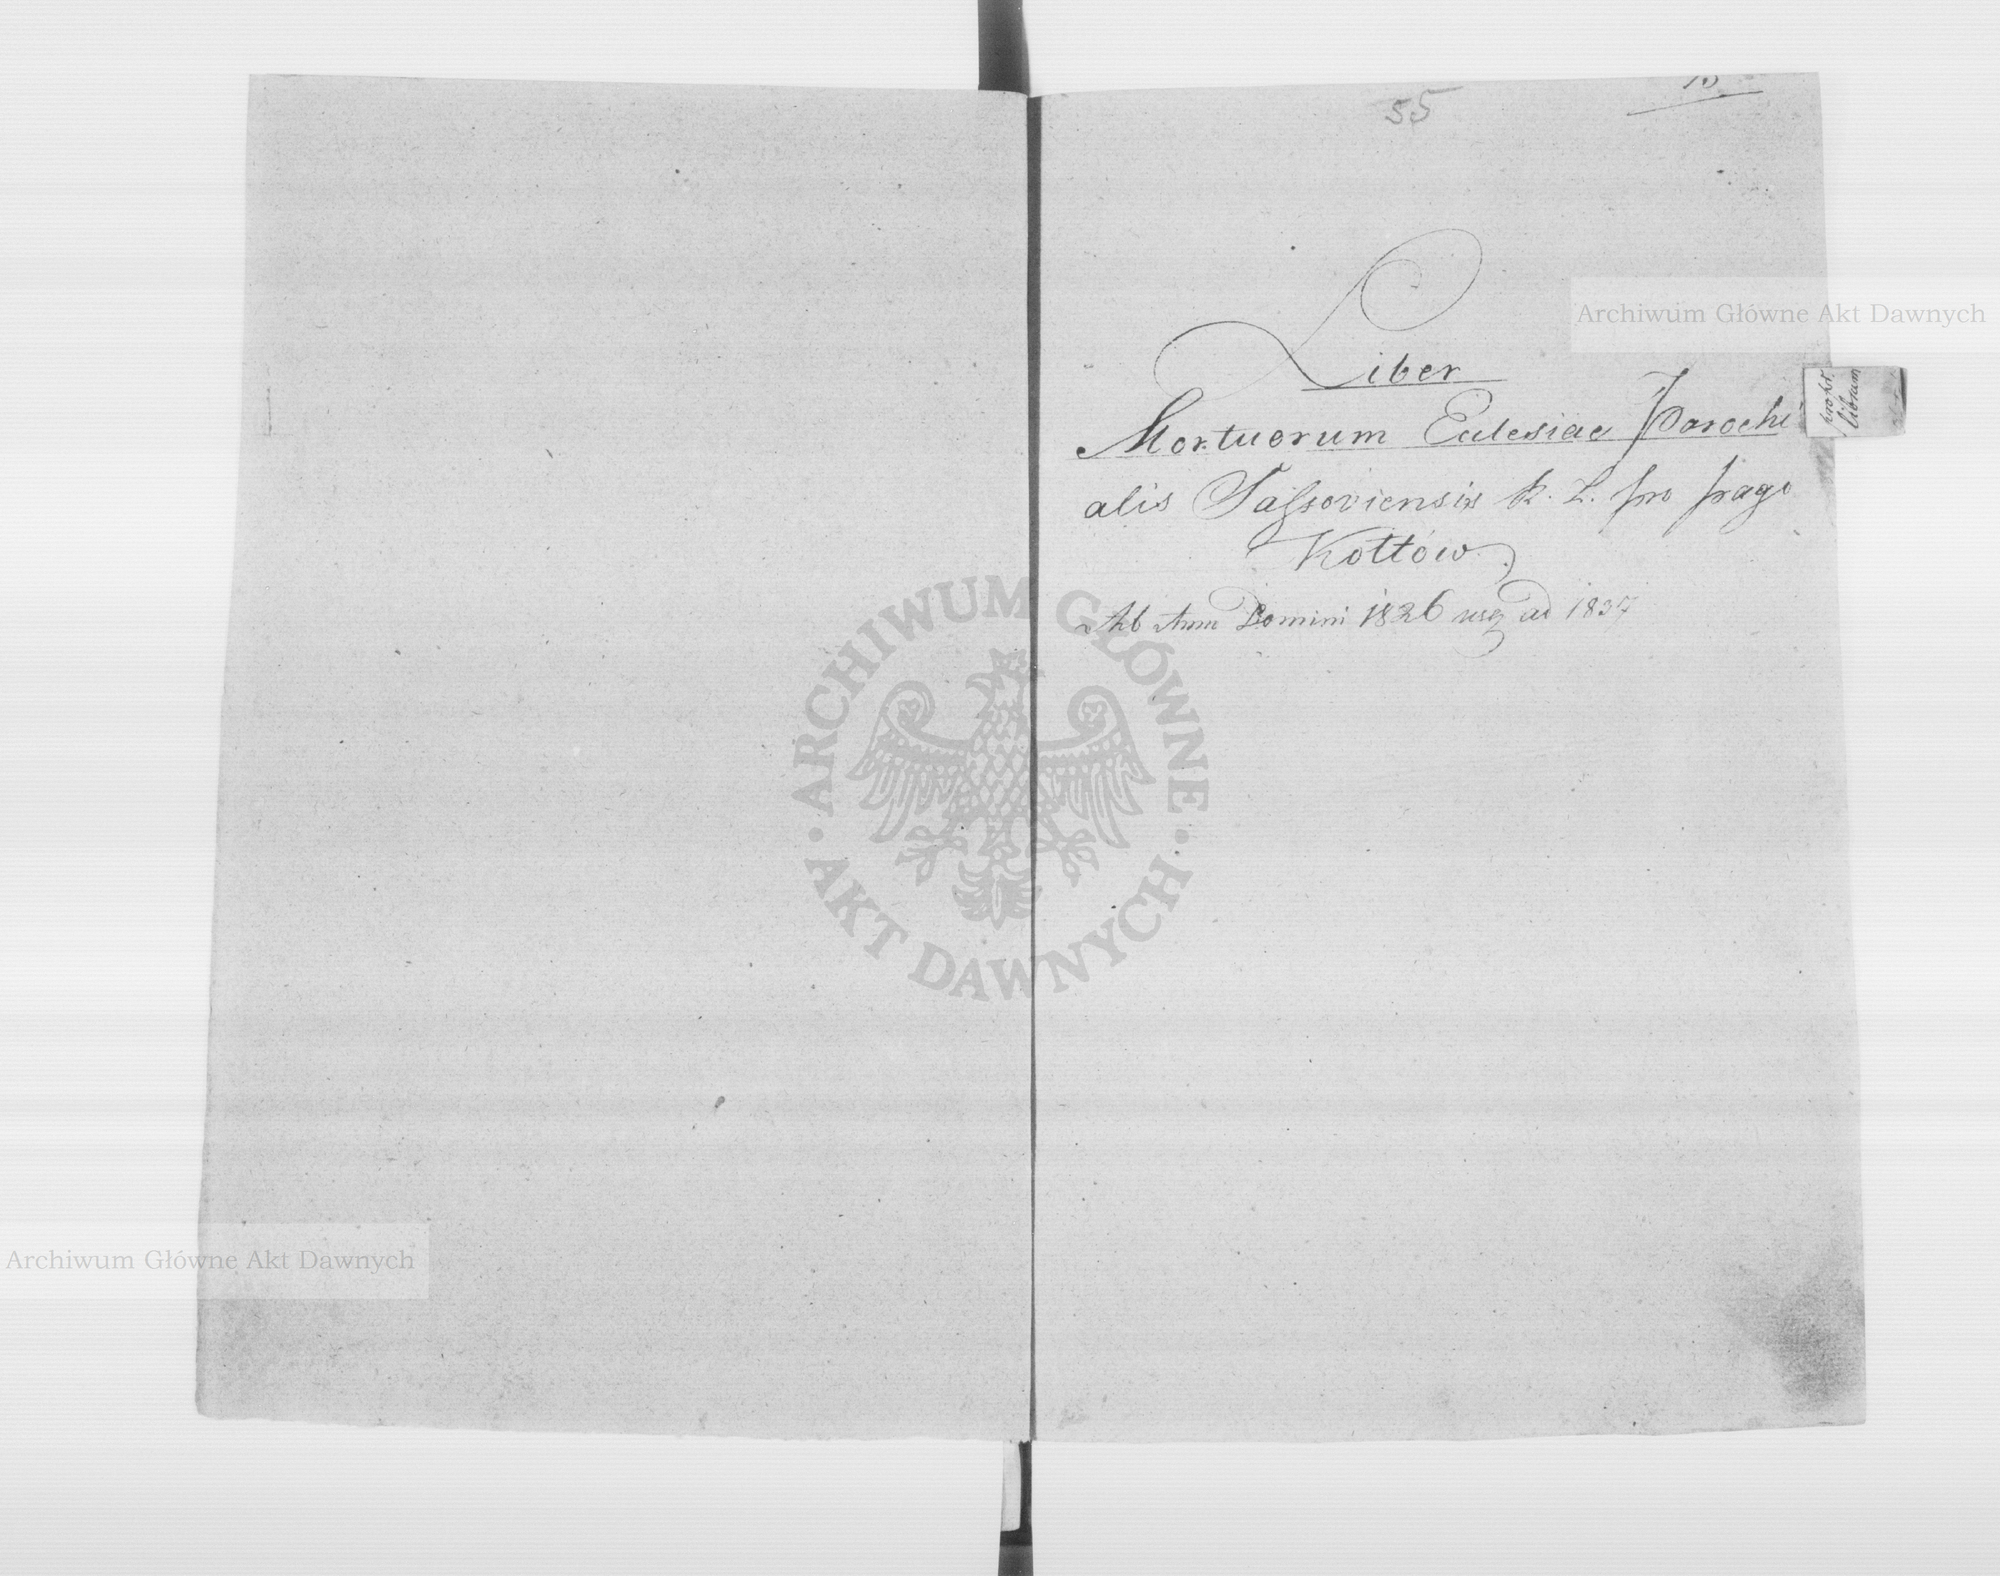 55
Liber
Mortuorum Eclesiae Parochi
alis Saſsoviensis R. L. pro pago
Kołtów
Ab Anno Domini 1826 usq ad 1837
librum
Archiwum Główne Akt Dawnych
ARCHIWUM GŁÓWNE
AKT DAWNYCH
Archiwum Główne Akt Dawnych